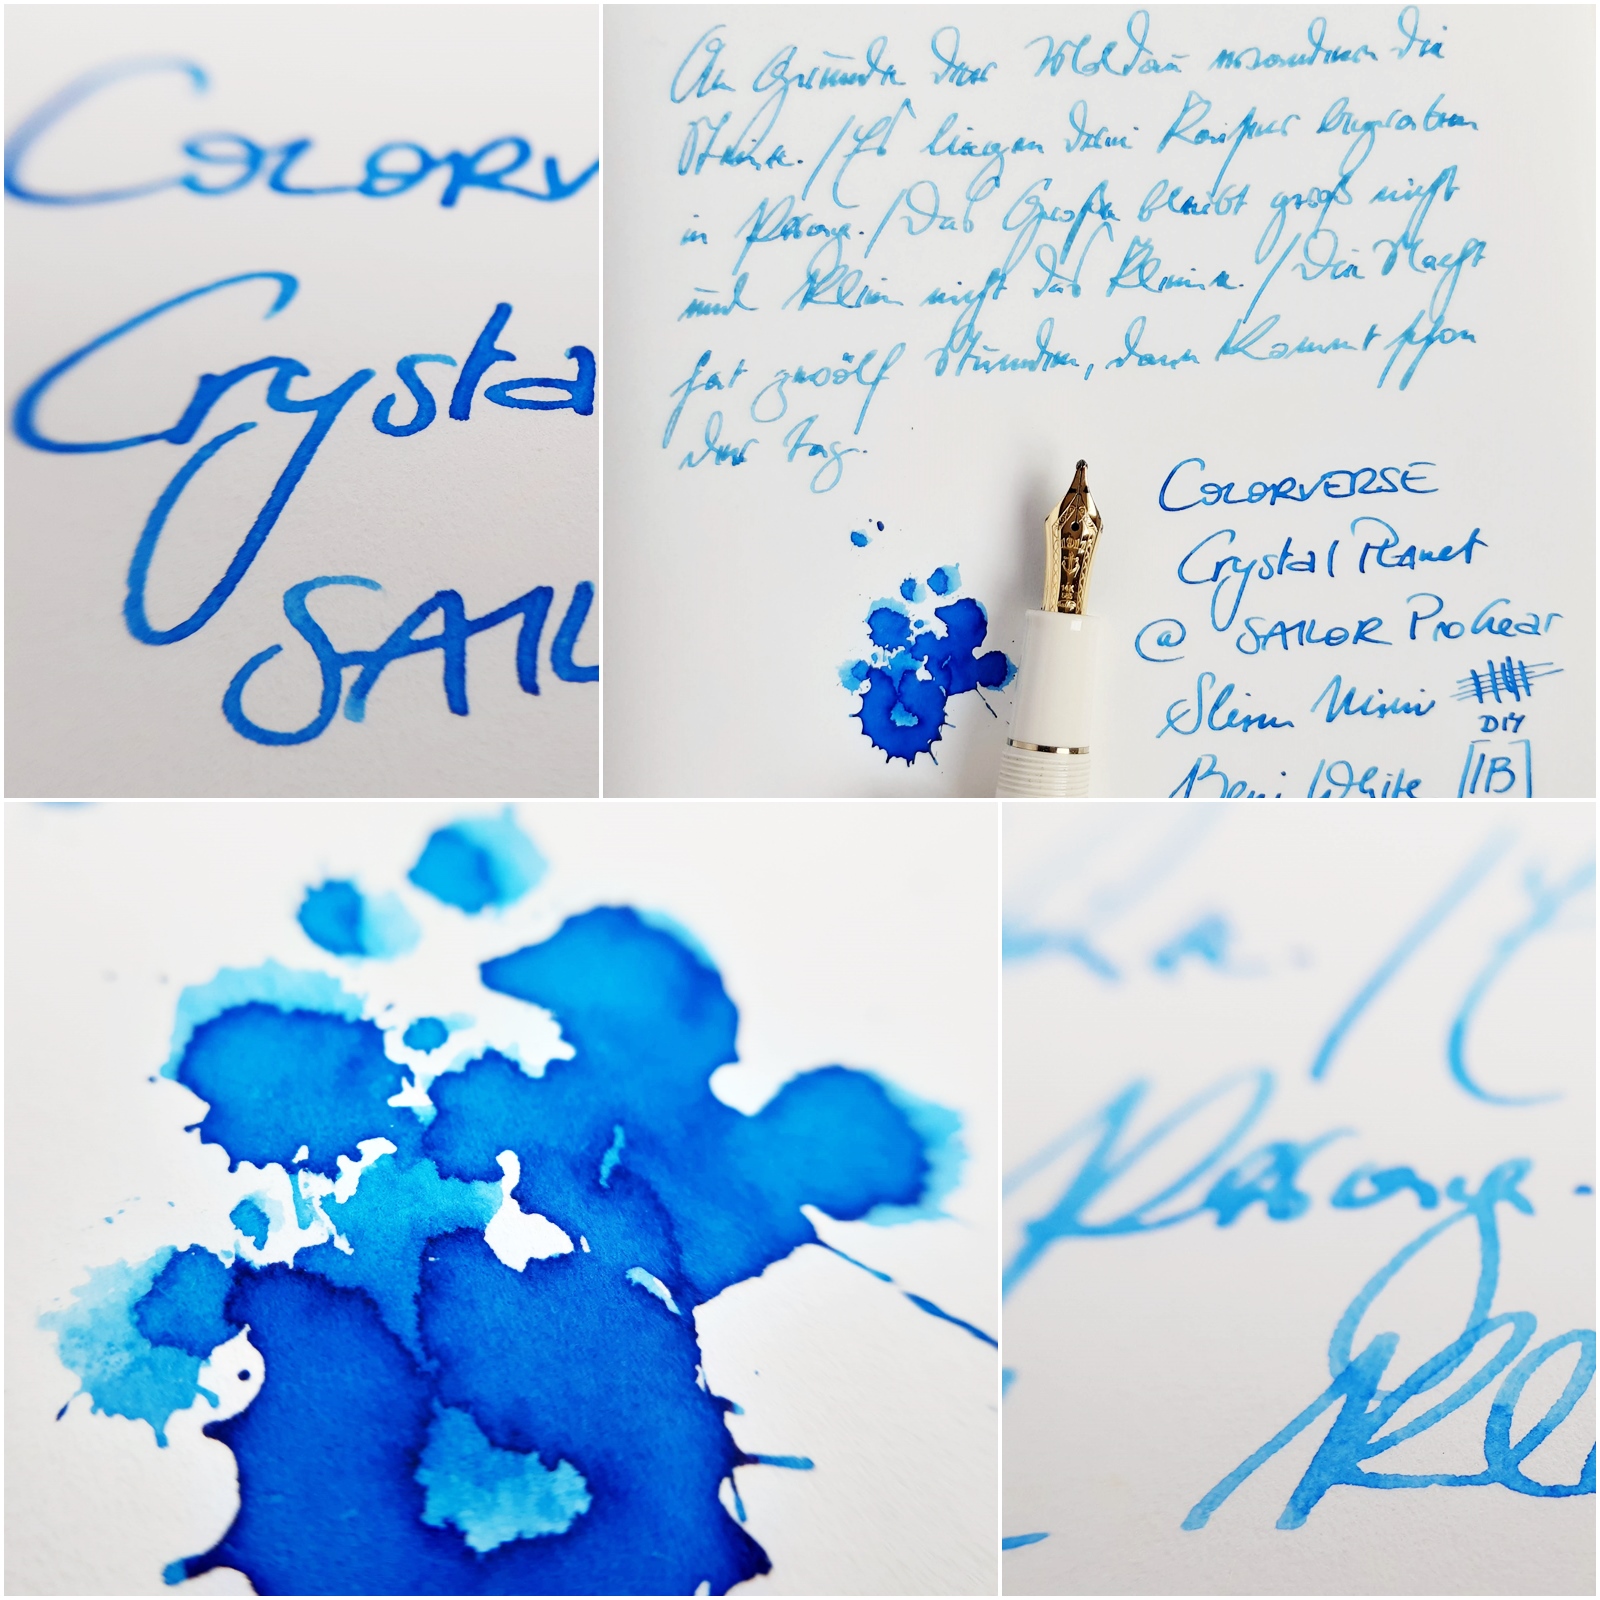 Colorv
Crysta
SAIL
Am Grunde der Moldau wandern die
Steine. / Es liegen drei Kaiser begraben
in Prag. / Das Große bleibt groß nicht
und klein nicht das Kleine. / Die Nacht
hat zwölf Stunden, dann kommt schon
der Tag.
COLORVERSE
Crystal Planet
@ SAILOR ProGear
Slim Mini
DIY
Beni White [IB]
1911
14K
585
Prag.
Kl